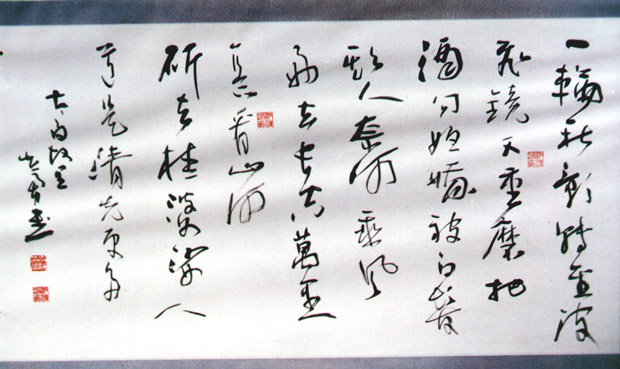 一輪秋影轉金波
飛鏡又重磨把
酒問姮娥被白髮
欺人奈何乘風
好去長空萬里
直下看山河
斫去桂婆娑人
道是清光更多
書